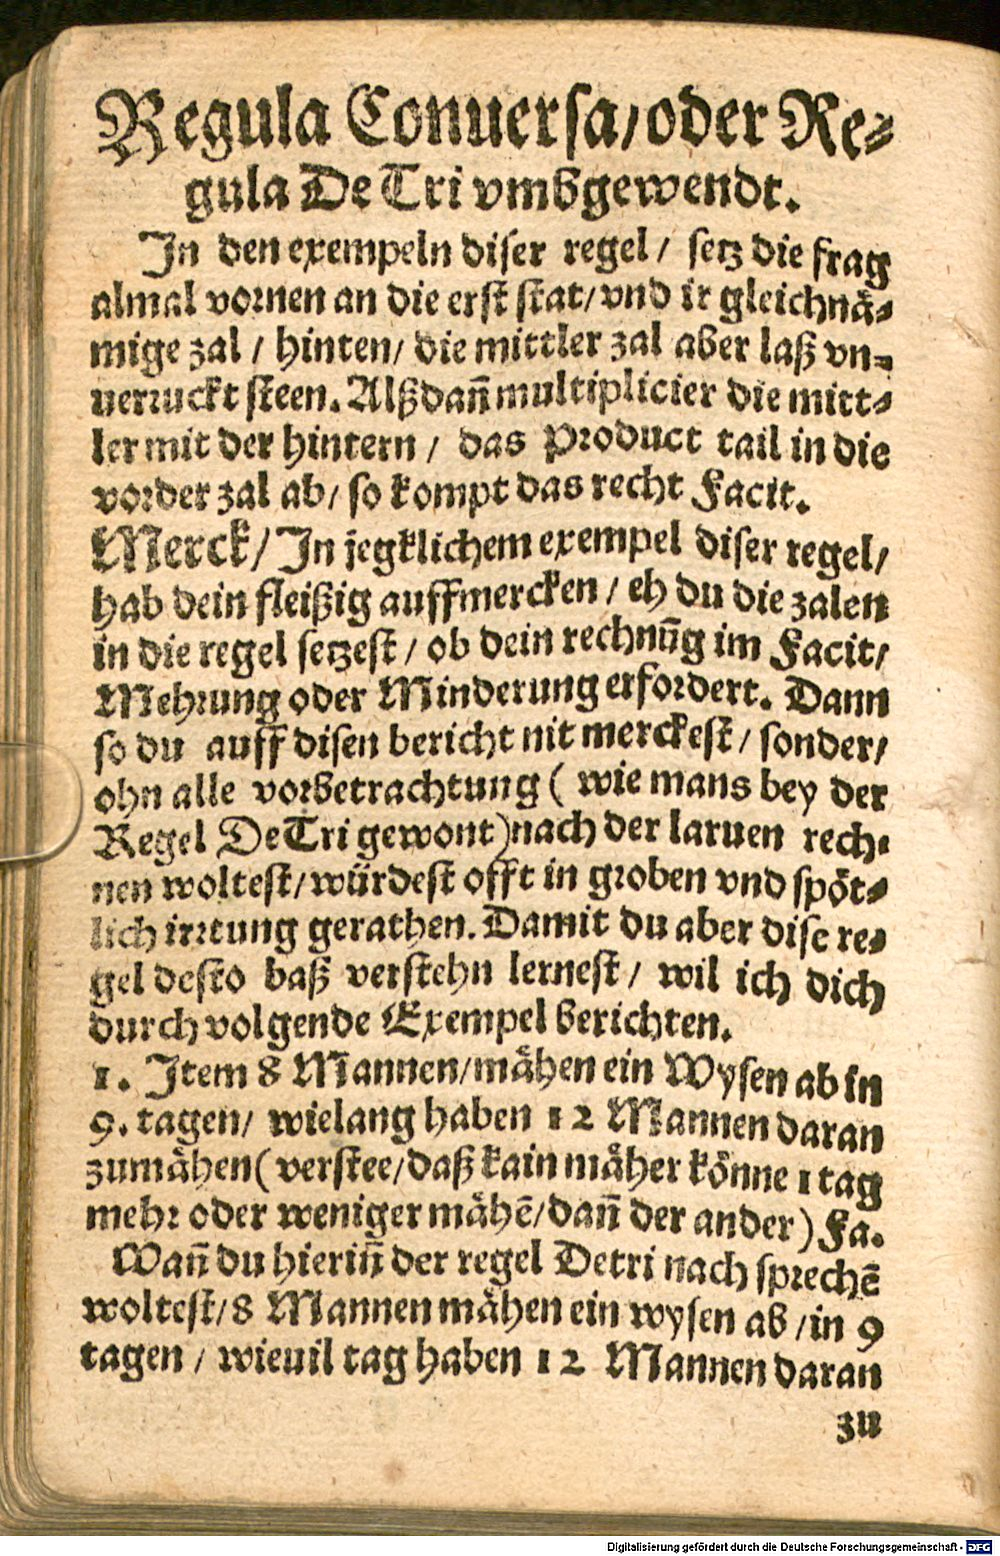 Regula Conuersa/oder Re⸗
gula De Tri vmbgewendt.
In den exempeln diser regel/ setz die frag
almal vornen an die erst stat/vnd ir gleichnä⸗
mige zal / hinten/ die mittler zal aber laß vn⸗
verruckt steen. Alßdañ multiplicier die mitt⸗
ler mit der hintern / das Product tail in die
vorder zal ab/ so kompt das recht Facit.
Merck/ In jegklichem exempel diser regel/
hab dein fleißig auffmercken / eh du die zalen
in die regel setzest / ob dein rechnũg im Facit/
Mehrung oder Minderung erfordert. Dann
so du auff disen bericht nit merckest / sonder/
ohn alle vorbetrachtung ( wie mans bey der
Regel De Tri gewont)nach der laruen rech⸗
nen woltest/würdest offt in groben vnd spöt⸗
lich irrtung gerathen. Damit du aber dise re⸗
gel desto baß verstehn lernest / wil ich dich
durch volgende Exempel berichten.
1. Item 8 Mannen/mähen ein Wysen ab in
9. tagen/ wielang haben 12 Mannen daran
zumähen( verstee/daß kain mäher könne 1 tag
mehr oder weniger mähẽ/dañ der ander) Fa.
Wañ du hieriñ der regel Detri nach sprechẽ
woltest/8 Mannen mähen ein wysen ab /in 9
tagen / wieuil tag haben 12 Mannen daran
zu
Digitalisierung gefördert durch die Deutsche Forschungsgemeinschaft - DFG